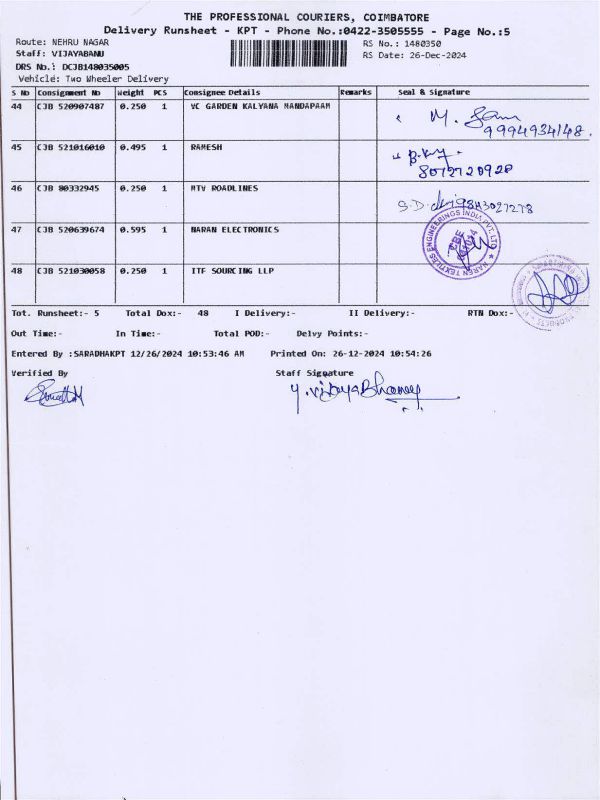 THE PROFESSIONAL COURIERS, COIMBATORE
Delivery Runsheet - KPT - Phone No.:0422-3505555 - Page No.:5
Route: NEHRU NAGAR
RS No.: 1480350
Staff: VIJAYABANU
RS Date: 26-Dec-2024
DRS No.: DCJB148035005
Vehicle: Two Wheeler Delivery
S No Consignment No Weight PCS Consignee Details Remarks Seal & Signature
44 CJB 520907487 0.250 1 VC GARDEN KALYANA MANDAPAAM
M.
9994934148.
45 CJB 521016010 0.495 1 RAMESH
8012720928
46 CJB 80332945 0.250 1 MTV ROADLINES
S.D.
47 CJB 520639674 0.595 1 NARAN ELECTRONICS
NAREN TEXTILES ENGINEERINGS INDIA PVT. LTD
48 CJB 521030058 0.250 1 ITF SOURCING LLP
Tot. Runsheet:- 5 Total Dox:- 48 I Delivery:- II Delivery:- RTN Dox:-
Out Time:- In Time:- Total POD:- Delvy Points:-
Entered By :SARADHAKPT 12/26/2024 10:53:46 AM Printed On: 26-12-2024 10:54:26
Verified By Staff Signature